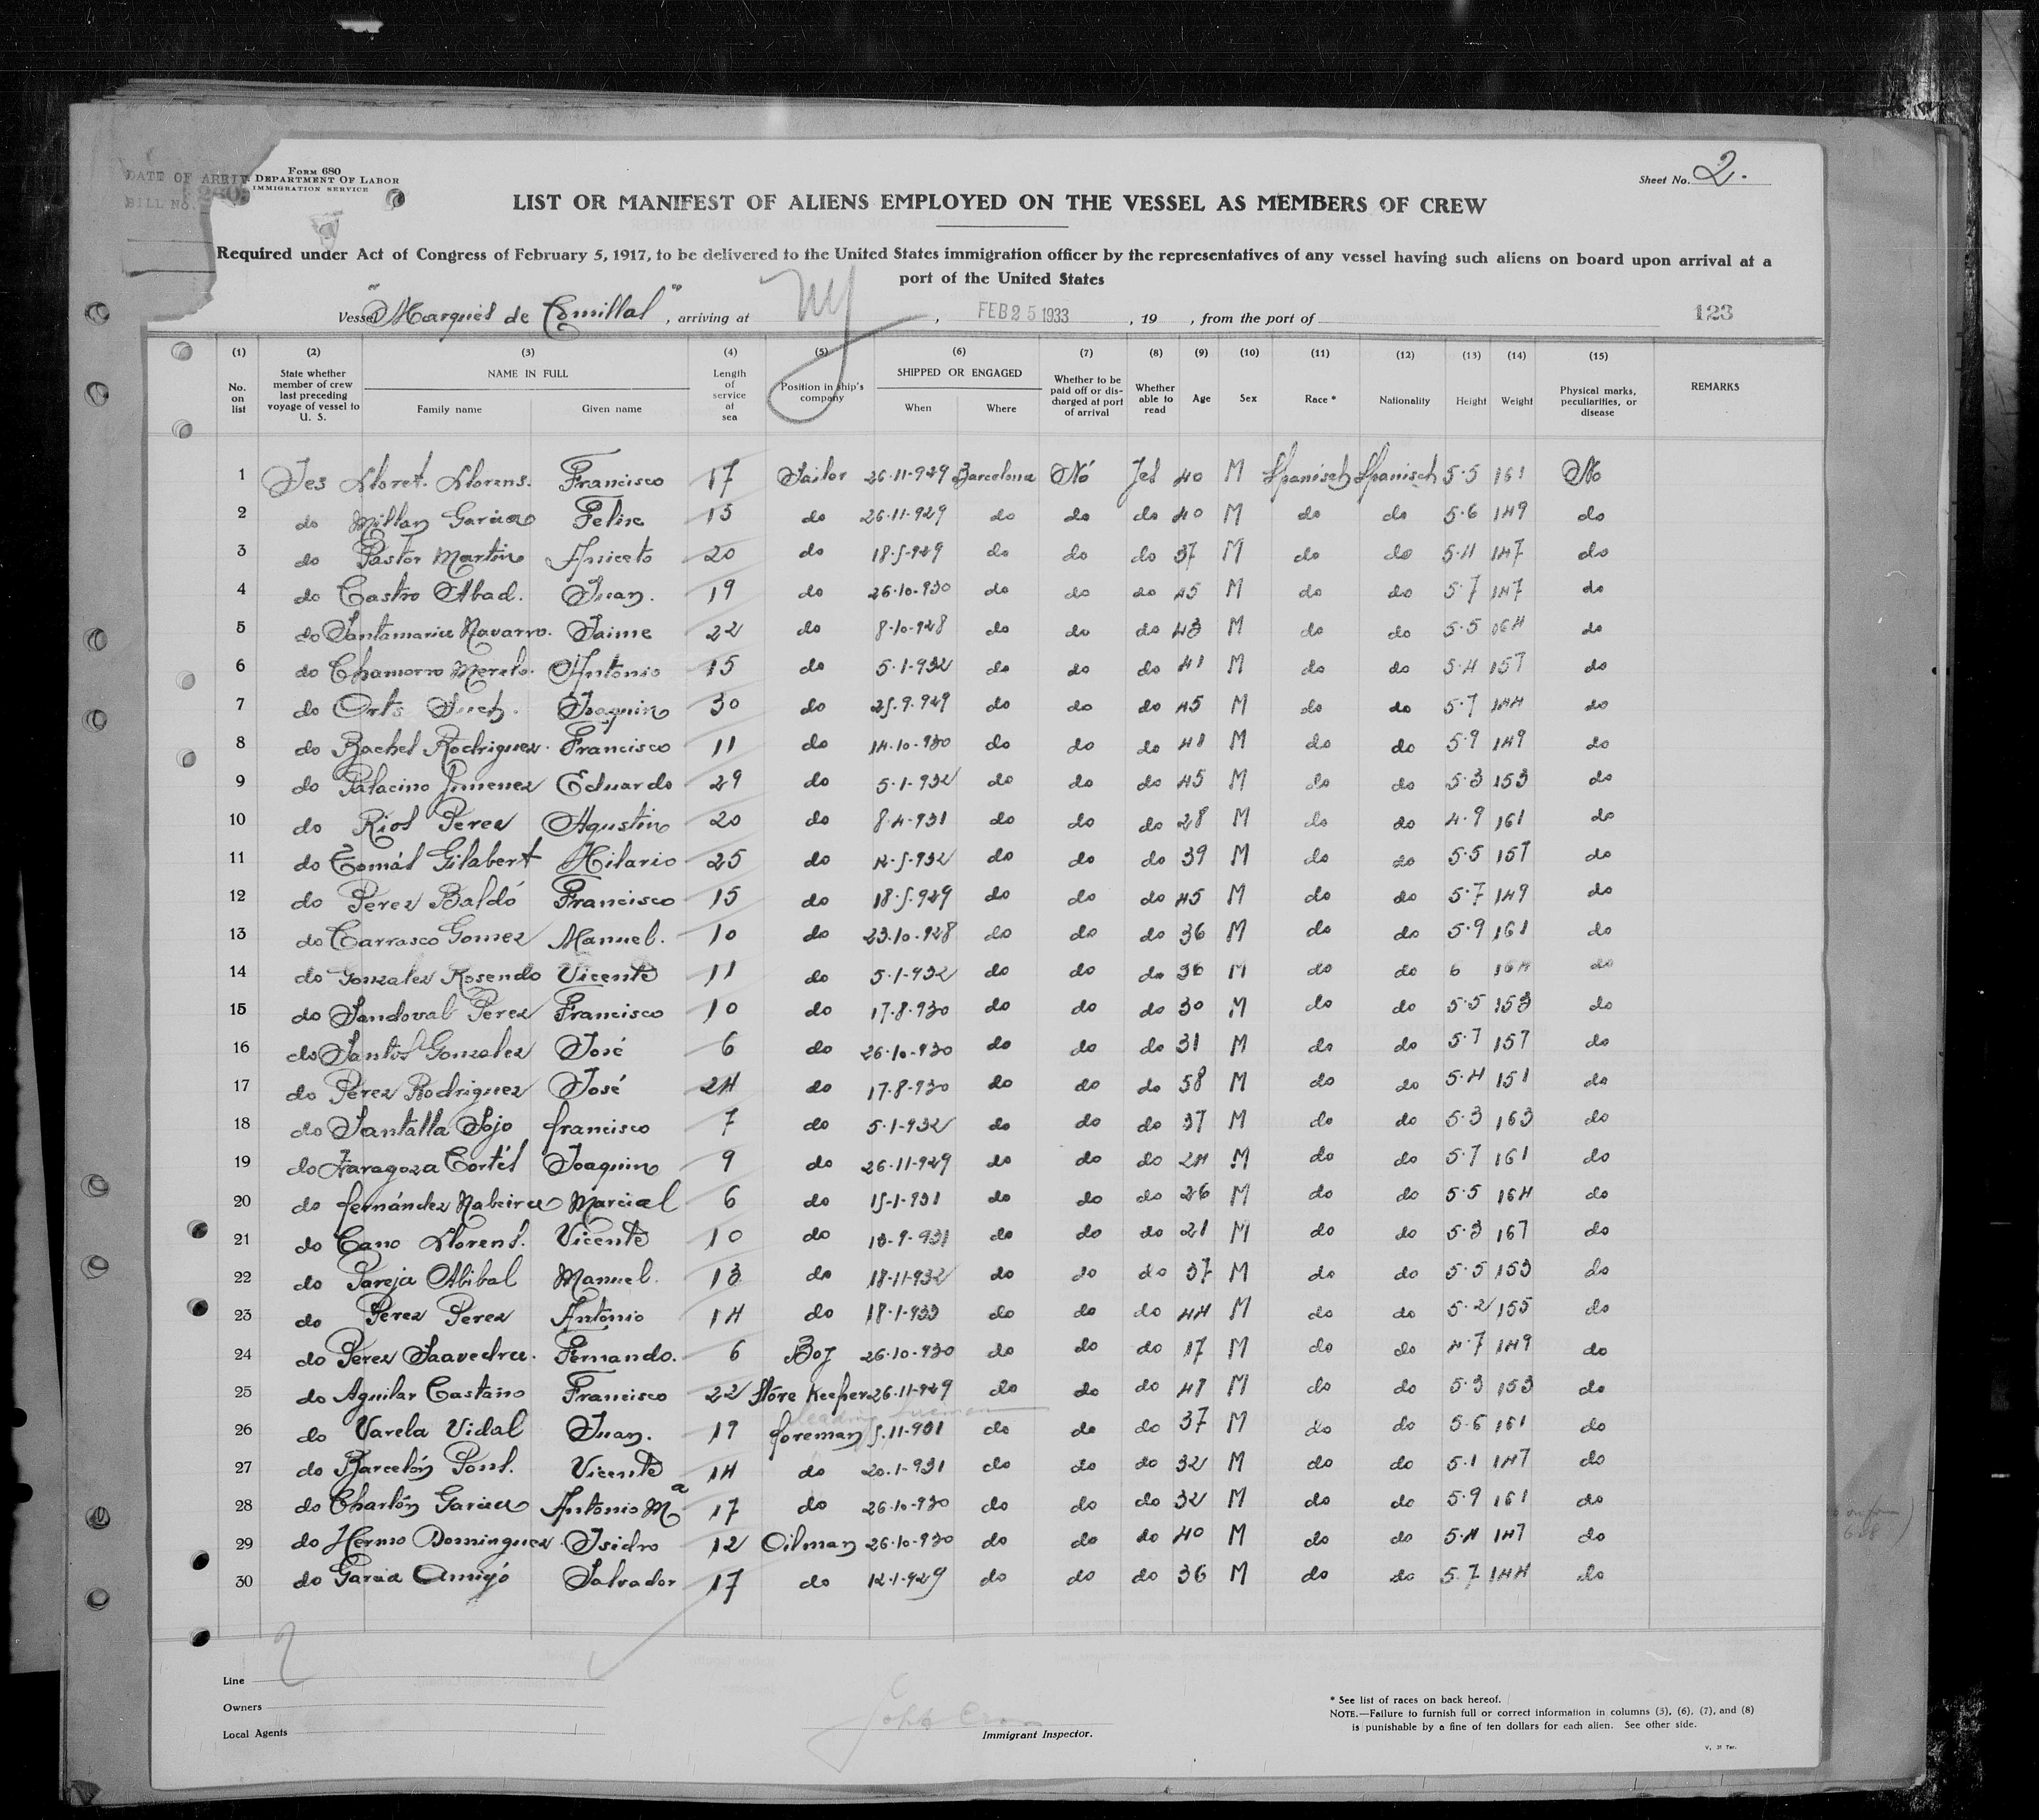 DATE OF ARRIV
BILL No.
FORM 680
DEPARTMENT OF LABOR
IMMIGRATION SERVICE
Sheet No. 2.
LIST OR MANIFEST OF ALIENS EMPLOYED ON THE VESSEL AS MEMBERS OF CREW
Required under Act of Congress of February 5, 1917, to be delivered to the United States immigration officer by the representatives of any vessel having such aliens on board upon arrival at a
port of the United States
Vessel "Marqués de Comillas", arriving at NY, FEB 25 1933, 19 , from the port of
123
(1) (2) (3) (4) (5) (6) (7) (8) (9) (10) (11) (12) (13) (14) (15)
No. on list State whether member of crew last preceding voyage of vessel to U. S. NAME IN FULL Family name Given name Length of service at sea Position in ship's company SHIPPED OR ENGAGED When Where Whether to be paid off or discharged at port of arrival Whether able to read Age Sex Race * Nationality Height Weight Physical marks, peculiarities, or disease REMARKS
1 Yes Lloret Llorens. Francisco 17 Sailor 26-11-929 Barcelona No Yes 40 M Spanisch Spanisch 5·5 161 No
2 do Millan Garcia Felix 15 do 26-11-929 do do do 40 M do do 5·6 149 do
3 do Pastor Martin Aniceto 20 do 18-5-929 do do do 37 M do do 5·4 147 do
4 do Castro Abad. Juan. 19 do 26-10-930 do do do 45 M do do 5·7 147 do
5 do Santamaria Navarro. Jaime 22 do 8-10-928 do do do 43 M do do 5·5 164 do
6 do Chamorro Merelo. Antonio 15 do 5-1-932 do do do 41 M do do 5·4 157 do
7 do Orts Such. Joaquin 30 do 25-9-929 do do do 45 M do do 5·7 144 do
8 do Bachel Rodriguez. Francisco 11 do 14-10-930 do do do 41 M do do 5·9 149 do
9 do Palacino Jimenez Eduardo 29 do 5-1-932 do do do 45 M do do 5·3 153 do
10 do Rios Perez Agustin 20 do 8-4-931 do do do 28 M do do 4·9 161 do
11 do Tomás Gilabert Hilario 25 do 12-5-932 do do do 39 M do do 5·5 157 do
12 do Perez Baldó Francisco 15 do 18-5-929 do do do 45 M do do 5·7 149 do
13 do Carrasco Gomez Manuel. 10 do 23-10-928 do do do 36 M do do 5·9 161 do
14 do Gonzalez Rosendo Vicente 11 do 5-1-932 do do do 36 M do do 6 164 do
15 do Sandoval Perez Francisco 10 do 17-8-930 do do do 30 M do do 5·5 153 do
16 do Santos Gonzalez José 6 do 26-10-930 do do do 31 M do do 5·7 157 do
17 do Perez Rodriguez José 24 do 17-8-930 do do do 58 M do do 5·4 151 do
18 do Santalla Sojo francisco 7 do 5-1-932 do do do 37 M do do 5·3 163 do
19 do Zaragoza Cortés Joaquin 9 do 26-11-929 do do do 24 M do do 5·7 161 do
20 do fernández Nabeira Marcial 6 do 15-1-931 do do do 26 M do do 5·5 164 do
21 do Cano Llorens. Vicente 10 do 18-9-931 do do do 21 M do do 5·3 167 do
22 do Pareja Abibal Manuel. 13 do 18-11-932 do do do 37 M do do 5·5 153 do
23 do Perez Perez Antonio 14 do 18-1-933 do do do 44 M do do 5·2 155 do
24 do Perez Saavedra. Fernando. 6 Boy 26-10-930 do do do 17 M do do 4·7 149 do
25 do Aguilar Castaño Francisco 22 Store Keeper 26-11-929 do do do 41 M do do 5·3 153 do
leading fireman
26 do Varela Vidal Juan. 17 foreman 5-11-931 do do do 37 M do do 5·6 161 do
27 do Barcelón Pons. Vicente 14 do 20-1-931 do do do 32 M do do 5·1 147 do
28 do Charlón Garcia Antonio Mª 17 do 26-10-930 do do do 32 M do do 5·9 161 do
29 do Hermo Dominguez Isidro 12 Oilman 26-10-930 do do do 40 M do do 5·4 147 do
30 do Garcia Amigó Salvador 17 do 12-1-929 do do do 36 M do do 5·7 144 do
Line
Owners
Local Agents
Immigrant Inspector.
* See list of races on back hereof.
NOTE.—Failure to furnish full or correct information in columns (3), (6), (7), and (8)
is punishable by a fine of ten dollars for each alien. See other side.